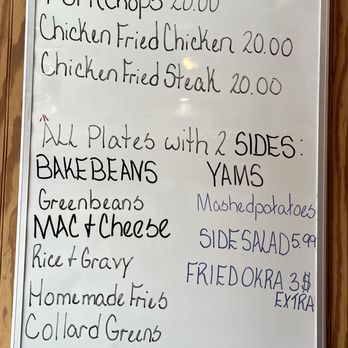 PorkChops 20.00
Chicken Fried Chicken 20.00
Chicken Fried Steak 20.00
All Plates with 2 SIDES:
BAKEBEANS YAMS
Greenbeans Mashedpotatoes
MAC + Cheese
SIDE SALAD 5.99
Rice + Gravy
FRIED OKRA 3$
EXTRA
Homemade Fries
Collard Greens